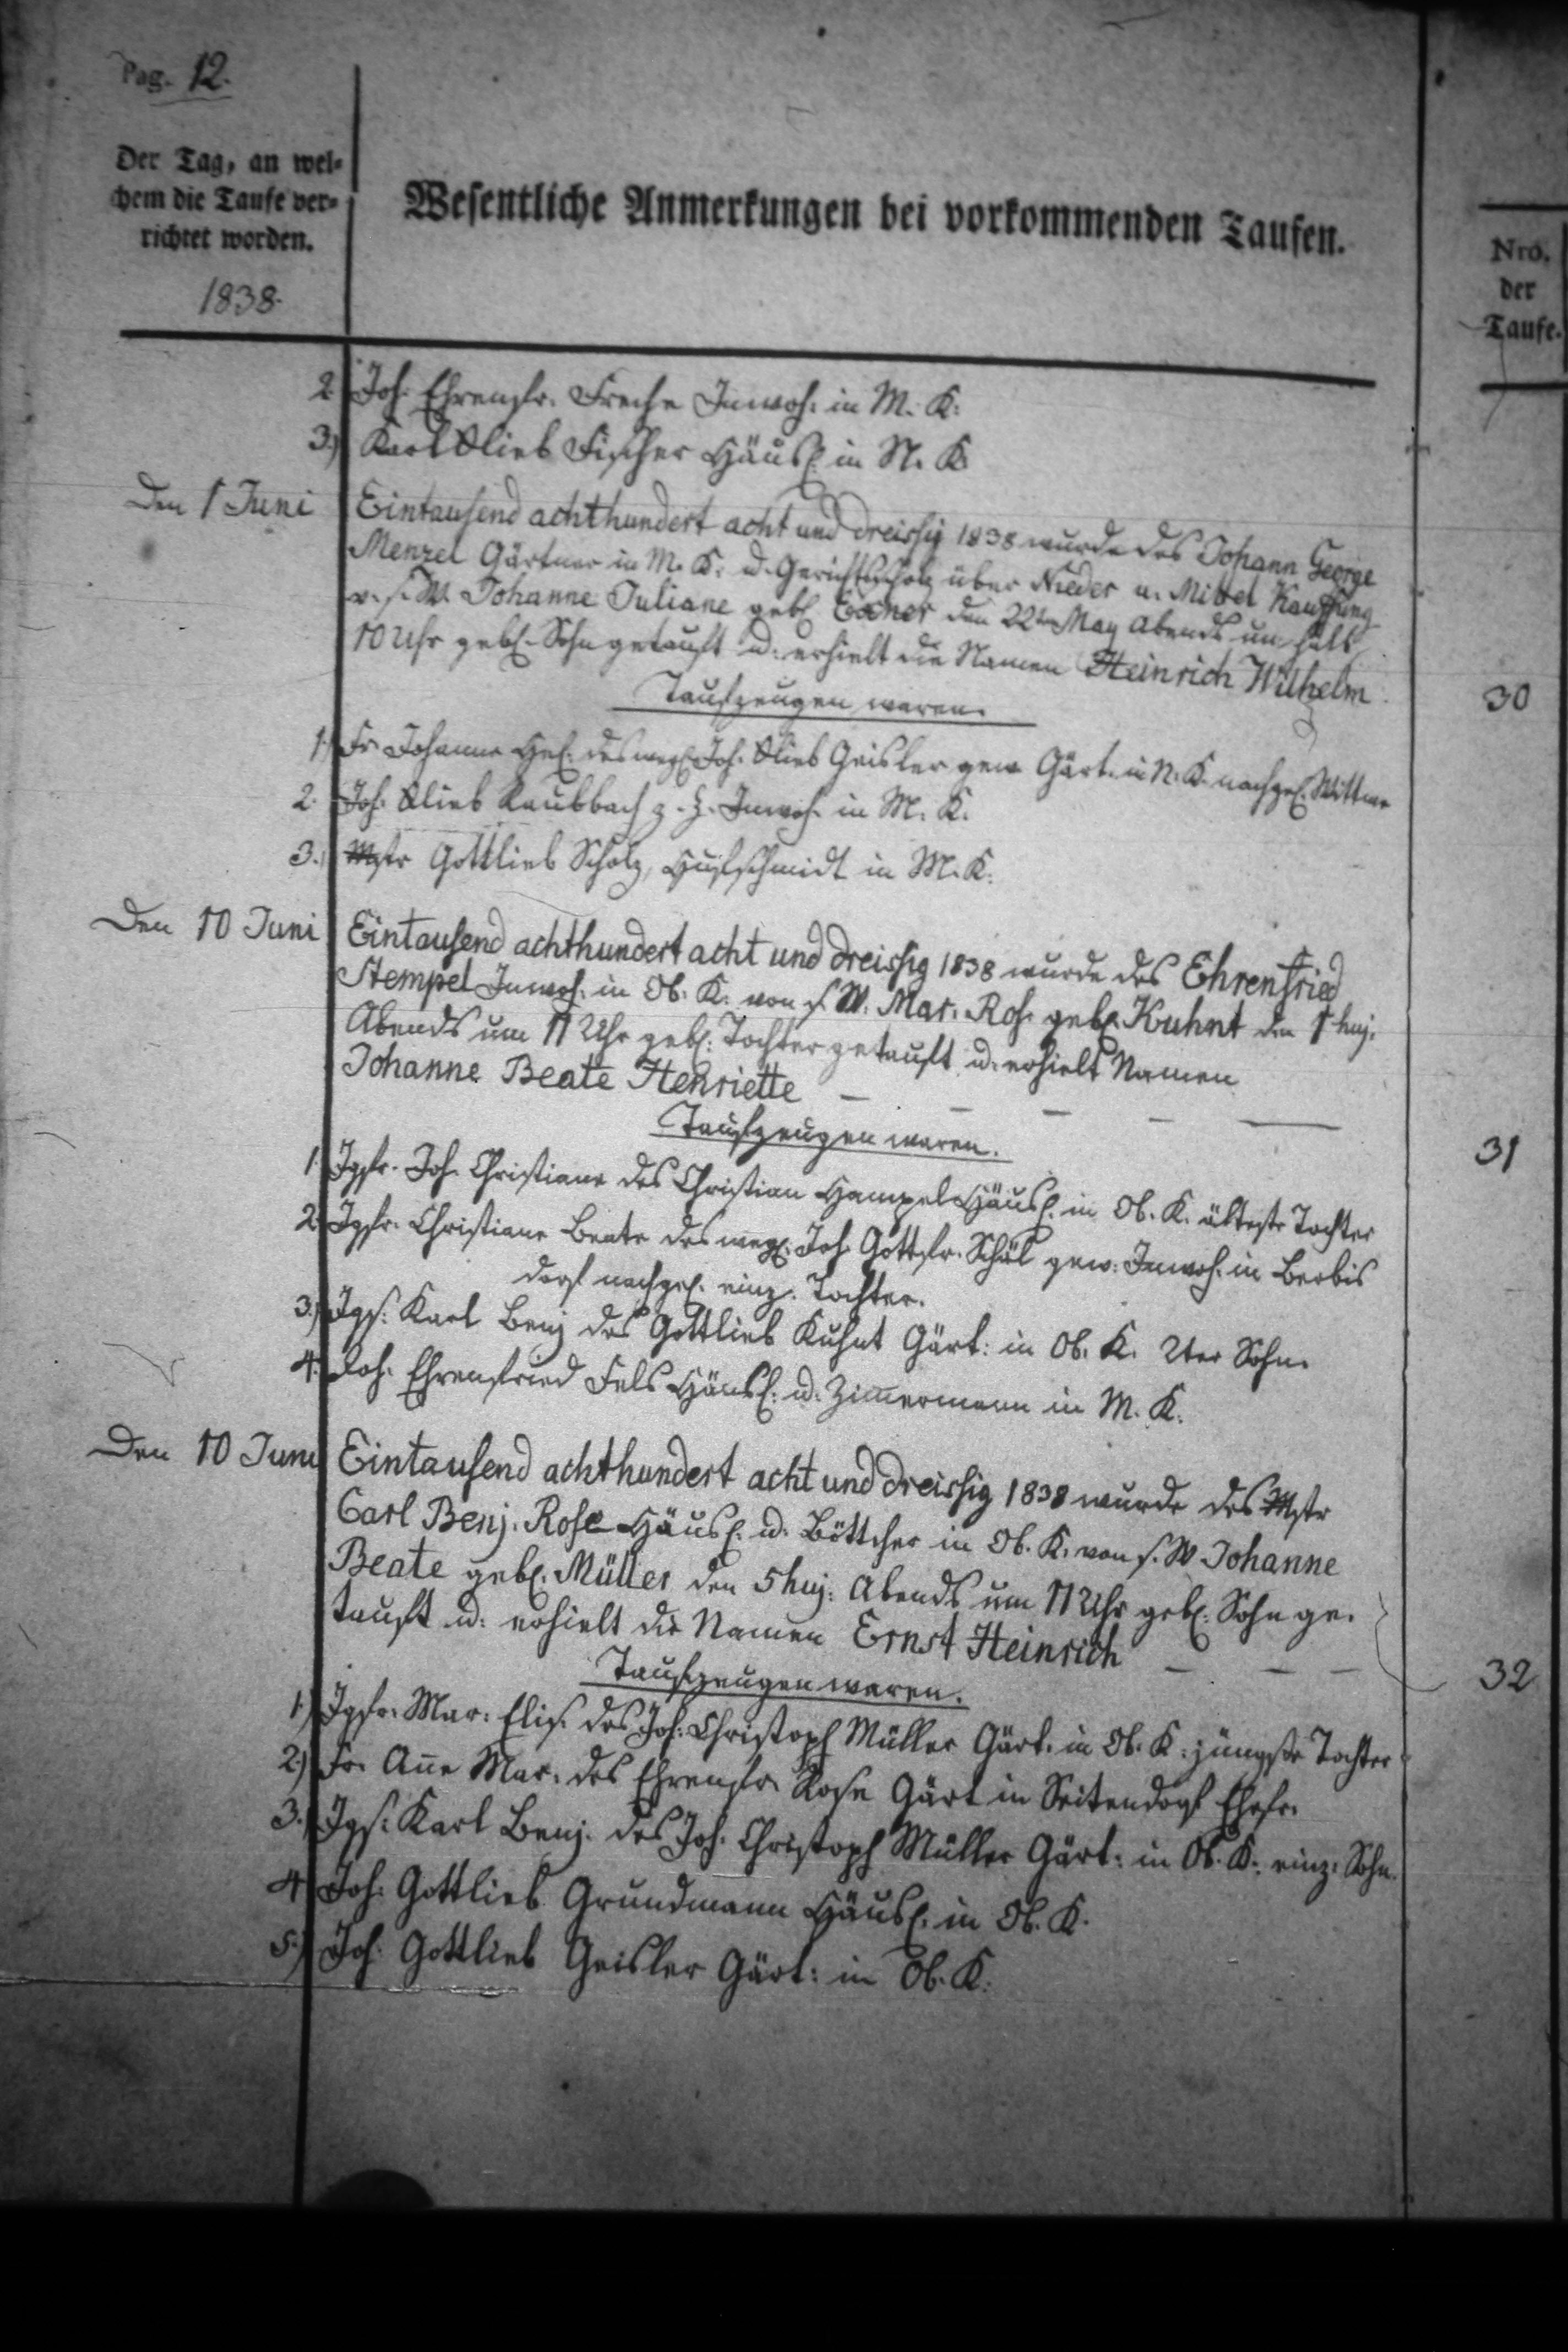 Pag. 12.
Der Tag, an wel-
chem die Taufe ver-
richtet worden.
1838.
Wesentliche Anmerkungen bei vorkommenden Taufen.
Nro.
der
Taufe.
2. Joh. Ehrenfr. Freche Inwoh. in M. K.
3.) Karl Glieb Fischer Häusl. in N. K.
Den 1 Juni Eintausend achthundert acht und dreissig 1838 wurde des Johann George
Menzel Gärtner in M. K. u. Gerichtsscholz über Nieder u. Mittel Kauffung
v. s. W. Johanne Juliane geb. Exner den 22ten May Abends um halb
10 Uhr geb. Sohn getauft u. erhielt die Namen Heinrich Wilhelm.
30
Taufzeugen waren.
1.) Fr. Johanne Hel. des weyl. Joh. Glieb Geisler gew. Gärt. in N. K. nachgel. Wittwe
2. Joh. Glieb Raubbach z. Z. Inwoh. in M. K.
3.) Mstr Gottlieb Scholz, Hufschmidt in M. K.
Den 10 Juni Eintausend achthundert acht und dreissig 1838 wurde des Ehrenfried
Stempel Inwoh. in Ob. K. von s. W. Mar. Ros. geb. Kuhnt den 1 huj.
Abends um 11 Uhr geb. Tochter getauft u. erhielt Namen
Johanne Beate Henriette
Taufzeugen waren.
31
1. Jgfr. Joh. Christiane des Christian Hampel Häusl. in Ob. K. älteste Tochter
2. Jgfr. Christiane Beate des weyl. Joh. Gottfr. Schäl gew. Inwoh. in Berbis
dorf nachgel. einz. Tochter.
3.) Jgs. Karl Benj des Gottlieb Kuhnt Gärt: in Ob. K. 2ter Sohn.
4. Joh. Ehrenfried Fels Häusl. u. Zimmermann in M. K.
Den 10 Juni Eintausend achthundert acht und dreissig 1838 wurde des Mstr
Carl Benj. Rose Häusl. u. Böttcher in Ob. K. von s. W Johanne
Beate geb. Müller den 5 huj. Abends um 11 Uhr geb. Sohn ge-
tauft u. erhielt die Namen Ernst Heinrich
32
Taufzeugen waren.
1.) Jgfr. Mar. Elis. des Joh. Christoph Müller Gärt. in Ob. K. jüngste Tochter
2.) Fr. Anne Mar. des Ehrenfr. Rose Gärt in Seitendorf Ehefr.
3.) Jgs. Karl Benj. des Joh. Christoph Müller Gärt: in Ob. K. einz. Sohn.
4 Joh. Gottlieb Grundmann Häusl. in Ob. K.
5.) Joh. Gottlieb Geisler Gärt: in Ob. K.